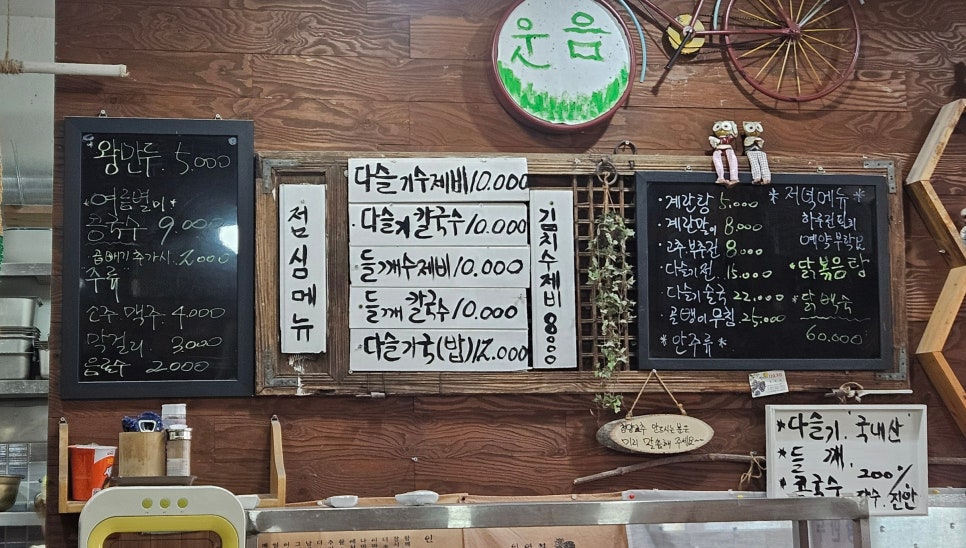 웃음
왕만두 5.000
*여름별미*
콩국수 9.000
곱배기 추가시 2,000
주류
소주 맥주. 4.000
막걸리. 3.000
음료수 2.000
점심메뉴
다슬기수제비 10.000
다슬기 칼국수 10.000
들깨수제비 10.000
들깨 칼국수 10.000
다슬기국(밥) 12.000
김치수제비 8000
*저녁메뉴*
하루전 미리
예약 부탁요
·계란탕 5.000
·계란말이 8.000
·고추부추전 8.000
·다슬기전. 15.000
다슬기술국 22.000
·골뱅이무침 25.000
*안주류*
*닭볶음탕
*닭백숙
60.000
미리 말씀해 주세요~
*다슬기. 국내산
*들깨.
*콩국수 200%
장수. 진안